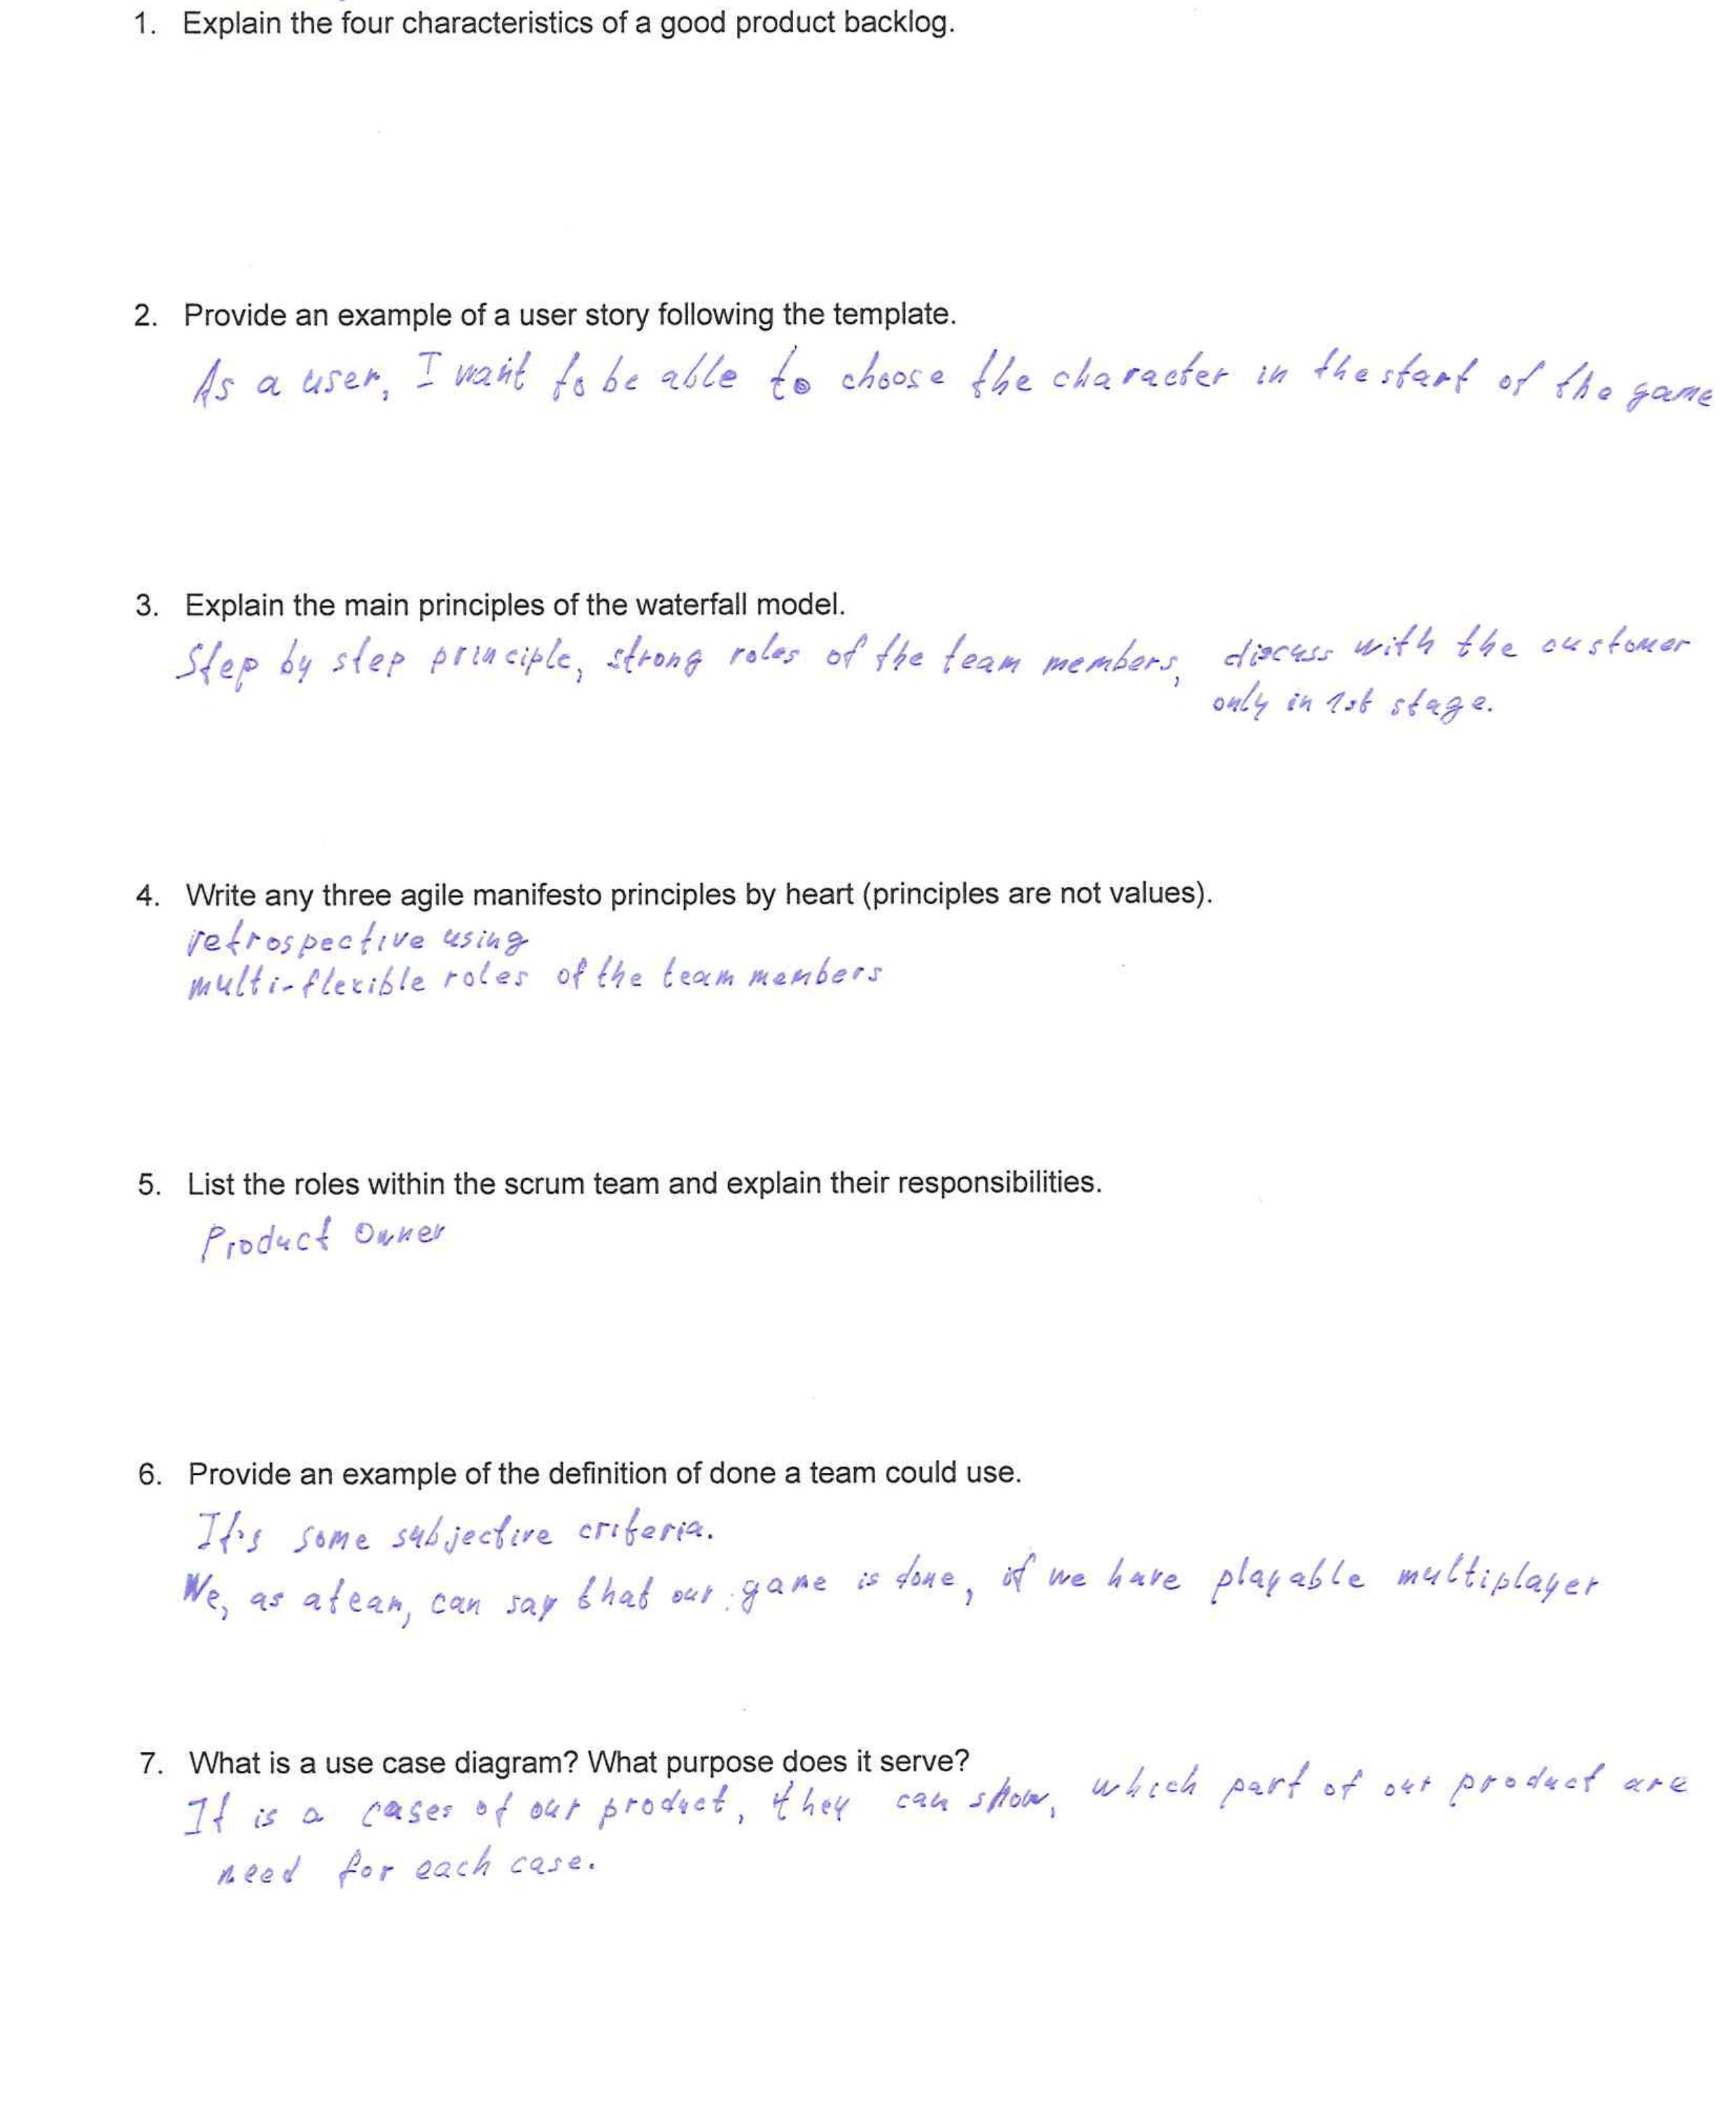 1. Explain the four characteristics of a good product backlog.
2. Provide an example of a user story following the template.
As a user, I want to be able to choose the character in the start of the game
3. Explain the main principles of the waterfall model.
Step by step principle, strong roles of the team members, discuss with the customer
only in 1st stage.
4. Write any three agile manifesto principles by heart (principles are not values).
retrospective using
multi-flexible roles of the team members
5. List the roles within the scrum team and explain their responsibilities.
Product Owner
6. Provide an example of the definition of done a team could use.
It's some subjective criteria.
We, as a team, can say that our game is done, if we have playable multiplayer
7. What is a use case diagram? What purpose does it serve?
It is a cases of our product, they can show, which part of our product are
need for each case.